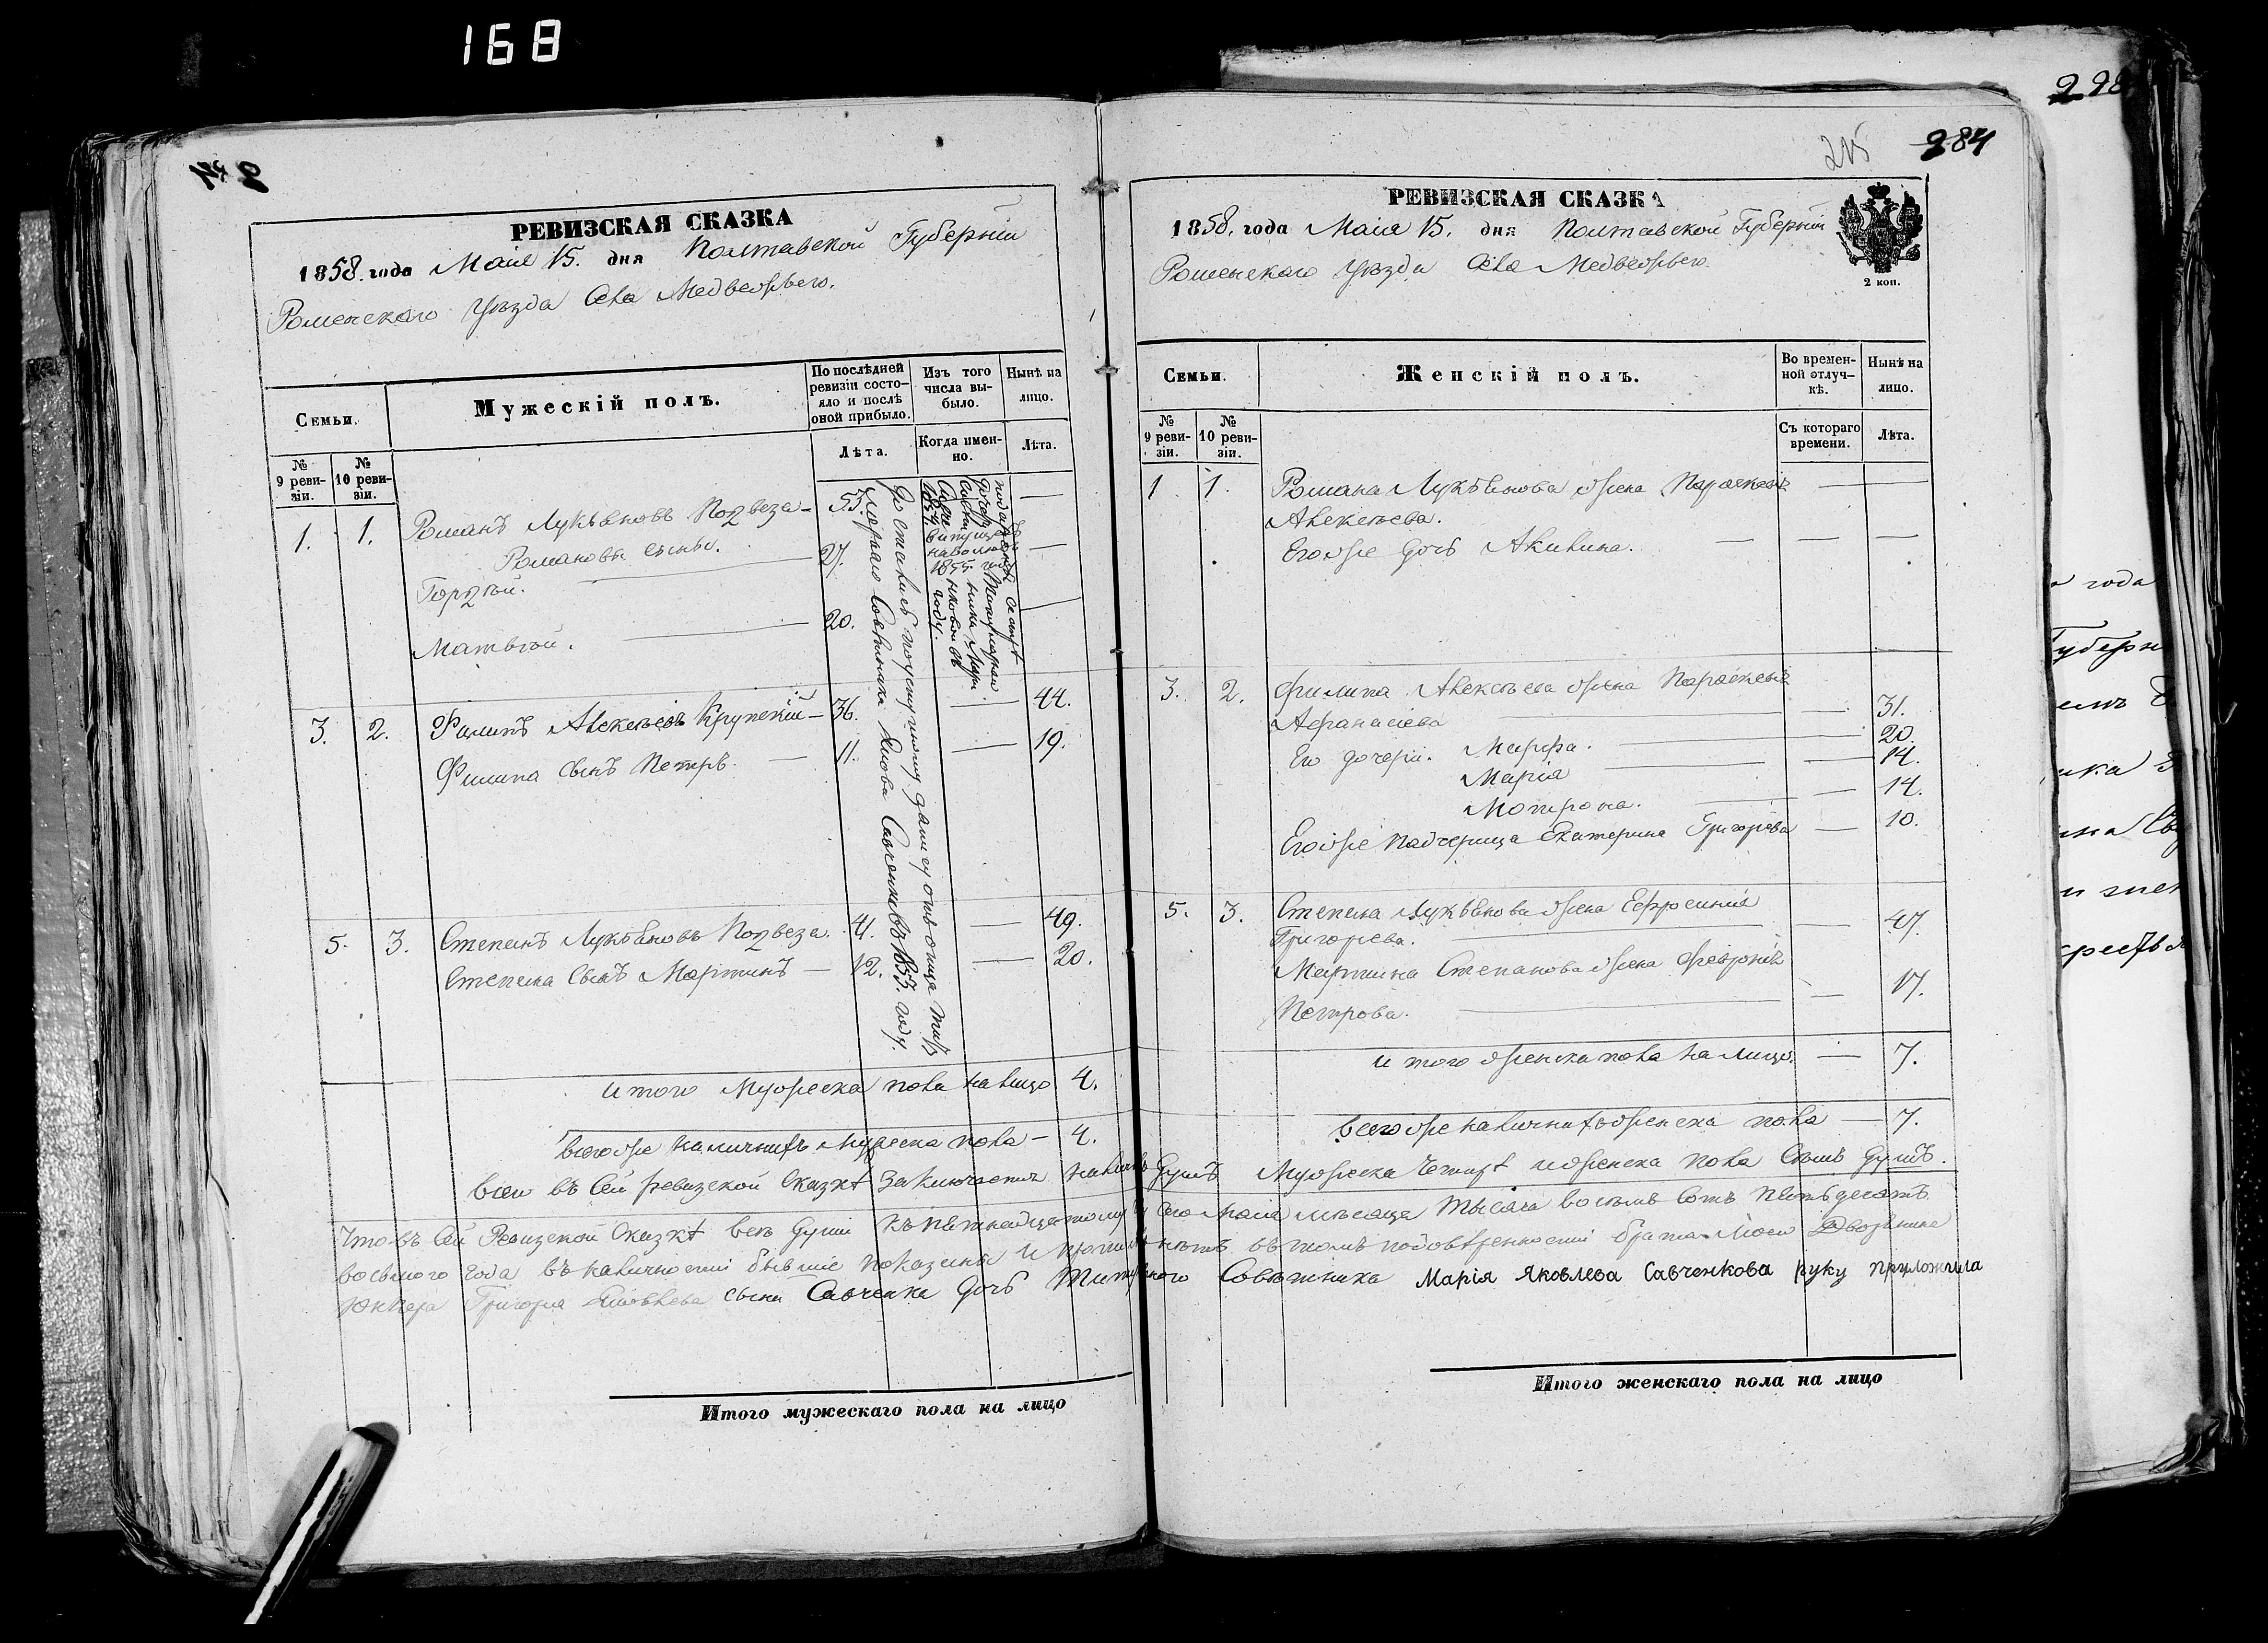 168
298
284
215
284
РЕВИЗСКАЯ СКАЗКА
1858. года Маія 15. дня Полтавской Губерніи
Роменского Уѣзда Села Медвежьего.
Семьи.
Мужескій полъ.
По послѣдней ревизіи состо-
яло и послѣ
оной прибыло.
Изъ того
числа вы-
было.
Нынѣ на
лицо.
№
9 реви-
зіи.
№
10 реви-
зіи.
Лѣта.
Когда имен-
но.
Лѣта.
1. 1. Романъ Лукьяновъ 55. —
Романовы сыны.
27. —
Матвей. 20. —
Достались поуступному данному отъ отца
Совѣтника Якова Савченка въ 1853. году.
3. 2. Филипъ Алексеевъ Крупскій — 36. — 44.
Филипа сынъ Петръ. — 11. — 19.
5. 3. Степанъ Лукьяновъ 41. — 49.
Степана сынъ Мартинъ — 12. — 20.
Итого Мужеска пола налицо 4.
Всегоже наличныхъ мужеска пола — 4.
РЕВИЗСКАЯ СКАЗКА
1858. года Маія 15. дня Полтавской Губерніи
Роменского Уѣзда Села Медвежьего.
2 коп.
Семьи.
Женскій полъ.
Во времен-
ной отлуч-
кѣ.
Нынѣ на
лицо.
№
9 реви-
зіи.
№
10 реви-
зіи.
Съ котораго
времени.
Лѣта.
1. 1. Романа Лукьянова жена Параскевія
Алексеева. — —
Егоже дочь Акилина. — — —
3. 2. Филипа Алексеева жена Параскевія
Афанасіева — 31.
Его дочери. Марфа. — 20.
Марія — 14.
Мотрона. — 14.
Егоже падчерица Екатерина Григорьева — 10.
5. 3. Степана Лукьянова жена Ефросинія
Григорьева. — 47.
Мартина Степанова жена Февронія
Петрова. — 17.
Итого женска пола на лицо. — 7.
Всегоже наличныхъ женска пола — 7.
Всего въ сей ревизской сказкѣ заключается налицо душъ Мужеска четыре иженска пола семь душъ.
Что въ сей Ревизской сказкѣ все души къ пятнадцатому Маія мѣсяца тысяча восемь сотъ пятьдесятъ
восьмого года въ наличности бывшіе показаны и нѣтъ, въ томъ подовѣренности брата моего Дворянина
Юнкера Григорія Яковлева сына Савченка дочь Титулярного Совѣтника Марія Яковлева Савченкова руку приложила
Итого мужескаго пола на лицо
Итого женскаго пола на лицо